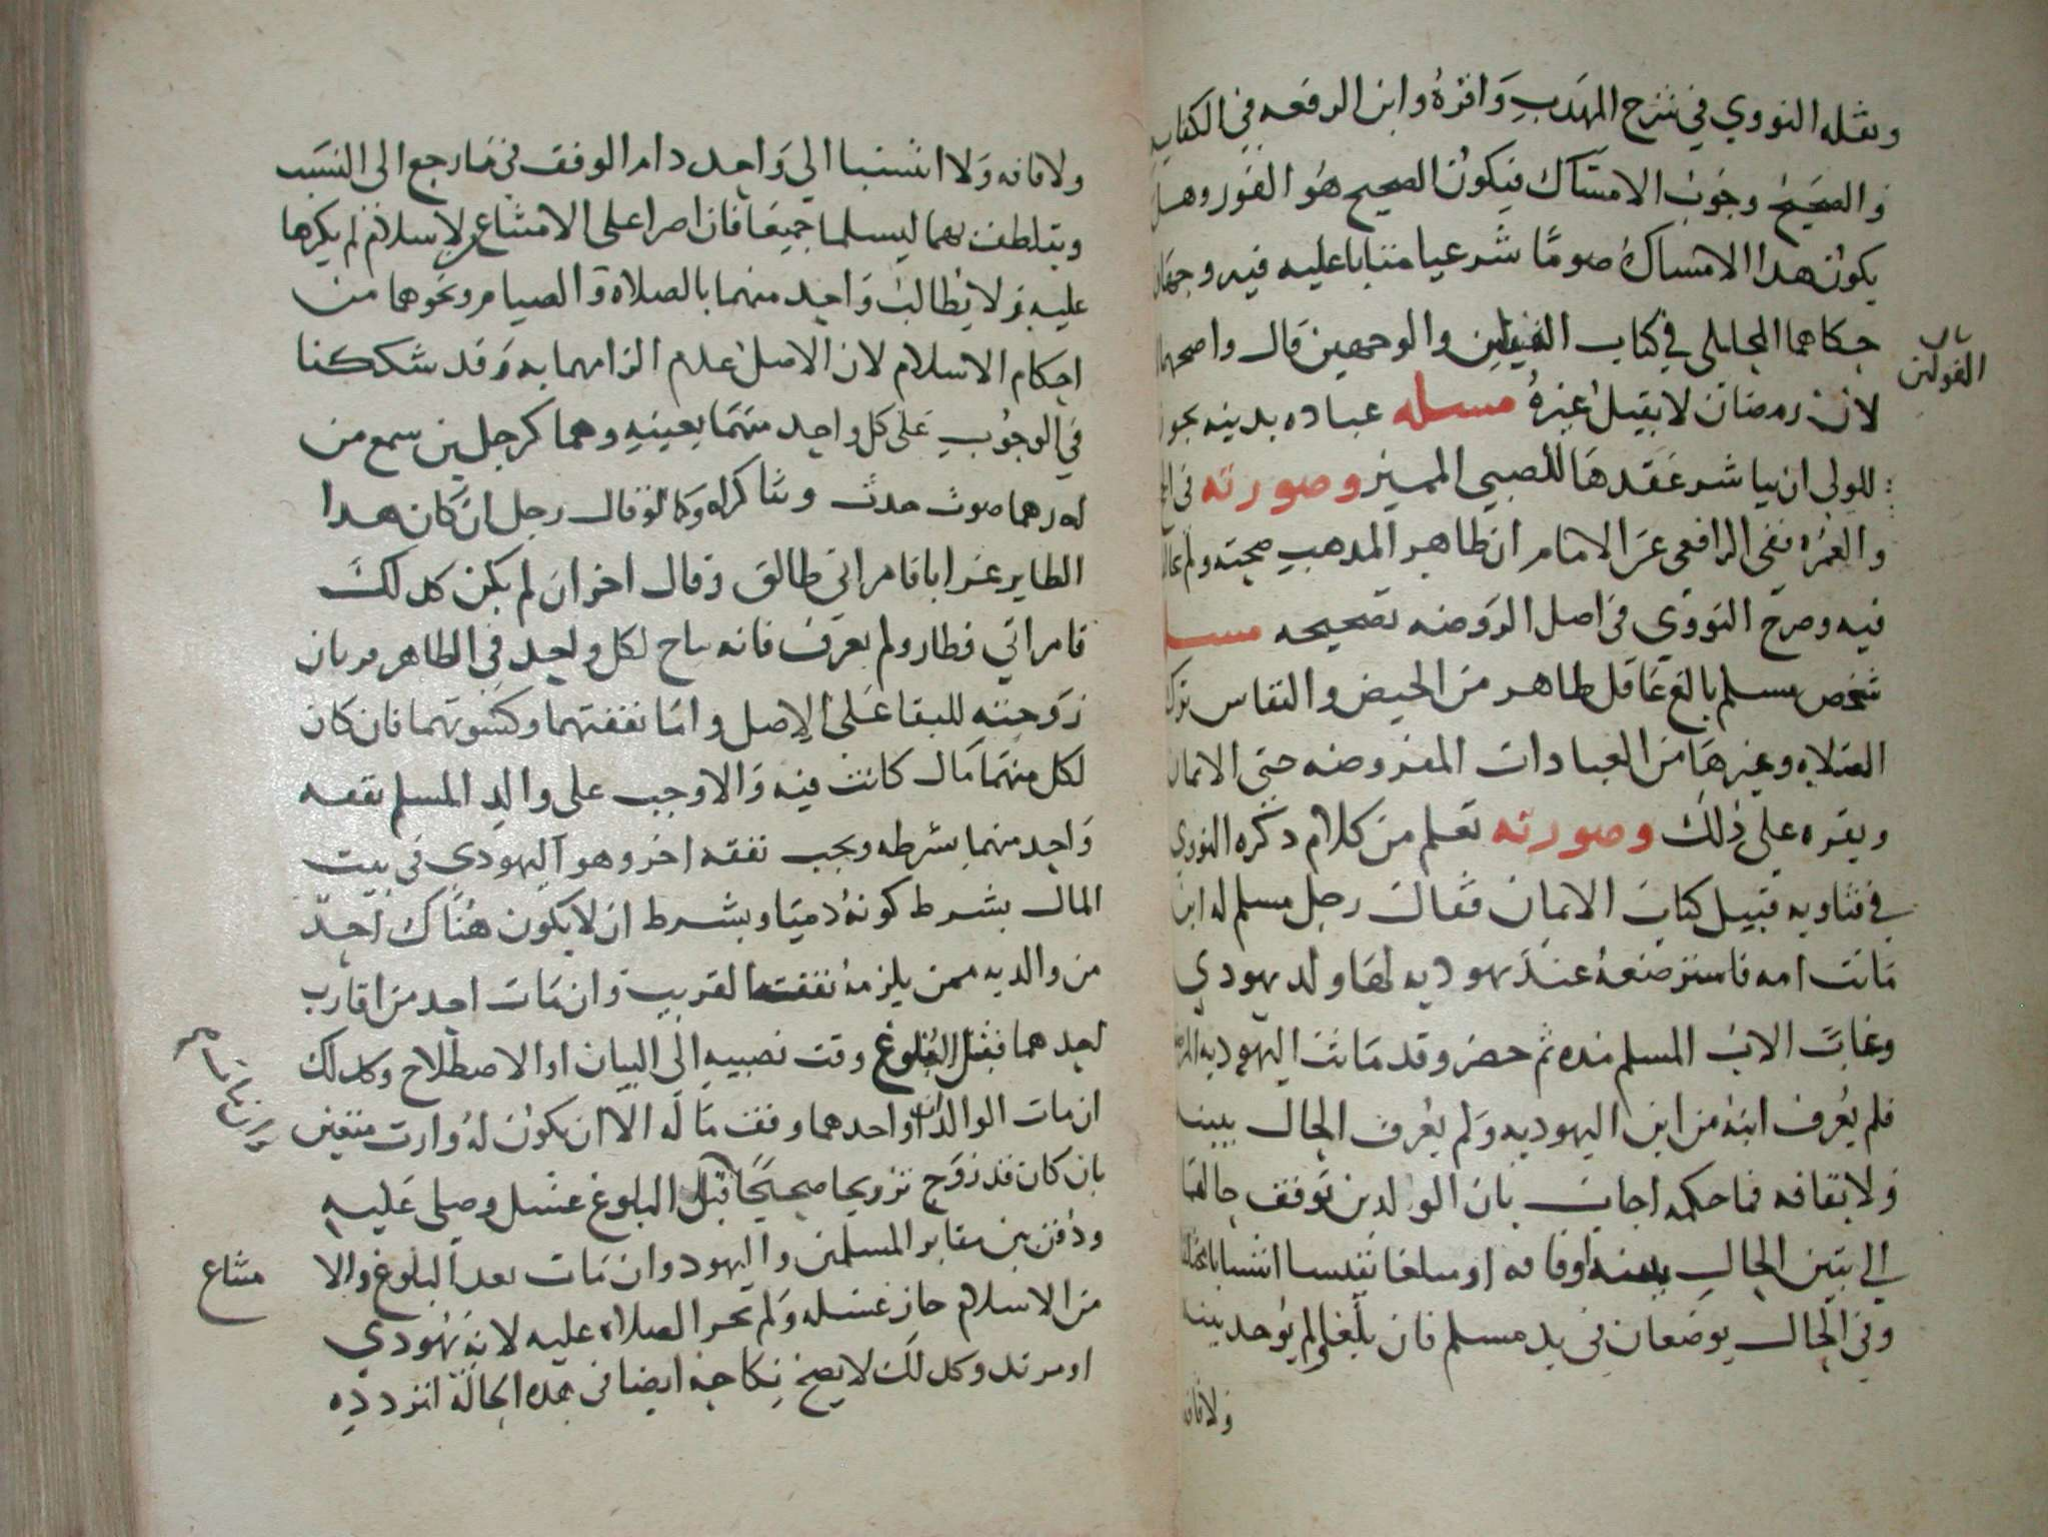 ونقله النووي في شرح المهذب واقره وابن الرفعه في الكفايه
والصحيح وجوب الامساك فيكون الصحيح هو الفور وهل
يكون هدا الامساك صوما شرعيا مثابا عليه فيه وجهان
حكاهما المحاملي في كتاب القولين والوجهين قال واصحهما
القولين
لان رمضان لا يقبل غيره مسله عباده بدنيه يجوز
للولي ان يباشر عقدها للصبي المميز وصورته في
والعمره ففي الرافعي عن الامام ان ظاهر المدهب صحته ولم
فيه وصرح النووي في اصل الروضه بتصحيحه مسله
شخص مسلم بالغ عاقل طاهر من الحيض والنفاس
الصلاه وغيرها من العبادات المفروضه حتى الايمان
ويقره على ذلك وصورته تعلم من كلام دكره النووي
في فتاويه قبيل كتاب الايمان فقال رجل مسلم له ابن
ماتت امه فاسترضعه عند يهوديه لها ولد يهودي
وغاب الاب المسلم مده ثم حضر وقد ماتت اليهوديه
فلم يعرف ابنه من ابن اليهوديه ولم يعرف الحال ببينه
ولا بقافه فما حكمه اجاب بان الولدين توقف حالهما
الي تبين الحال ببينه او قافه او يبلغا فينتسبا انتسابا
وفي الحال يوضعان في يد مسلم فان بلغا ولم يوجد بينه
ولا قافه
ولا قافه ولا انتسبا الي واحد دام الوقف فيما رجع الى النسب
ويتلطف بهما ليسلما جميعا فان اصرا على الامتناع من الاسلام لم يكرها
عليه ولا يطالب واحد منهما بالصلاة والصيام ونحوهما من
احكام الاسلام لان الاصل عدم الزامهما به وقد شككنا
في الوجوب على كل واحد منهما بعينه وهما كرجلين سمع من
احدهما صوت حدث وتناكراه وكما لو قال رجل ان كان هدا
الطاير غرابا فامراتي طالق وقال اخر ان لم يكن كدلك
فامراتي فطار ولم يعرف فانه يباح لكل واحد في الظاهر قربان
زوجته للبقا على الاصل واما نفقتهما وكسوتهما فان كان
لكل منهما مال كانت فيه والا وجب على والد المسلم نفقه
واحد منهما بشرطه ويجب نفقه اخر وهو اليهودي في بيت
المال بشرط كونه دميا وبشرط ان لا يكون هناك احد
من والديه ممن يلزمه نفقه القريب وان مات احد من اقارب
احدهما قبل البلوغ وقف نصيبه الى البيان او الاصطلاح وكدلك
ان مات الوالدان او احدهما وقف ماله الا ان يكون له وارث متعين
وان مات
بان كان قد زوج تزويجا صحيحا قبل البلوغ غسل وصلي عليه
ودفن بين مقابر المسلمين واليهود وان مات بعد البلوغ والا
متناع
من الاسلام جاز غسله ولم تجز الصلاه عليه لانه يهودي
او مرتد وكدلك لا يصح نكاحه ايضا في هده الحالة